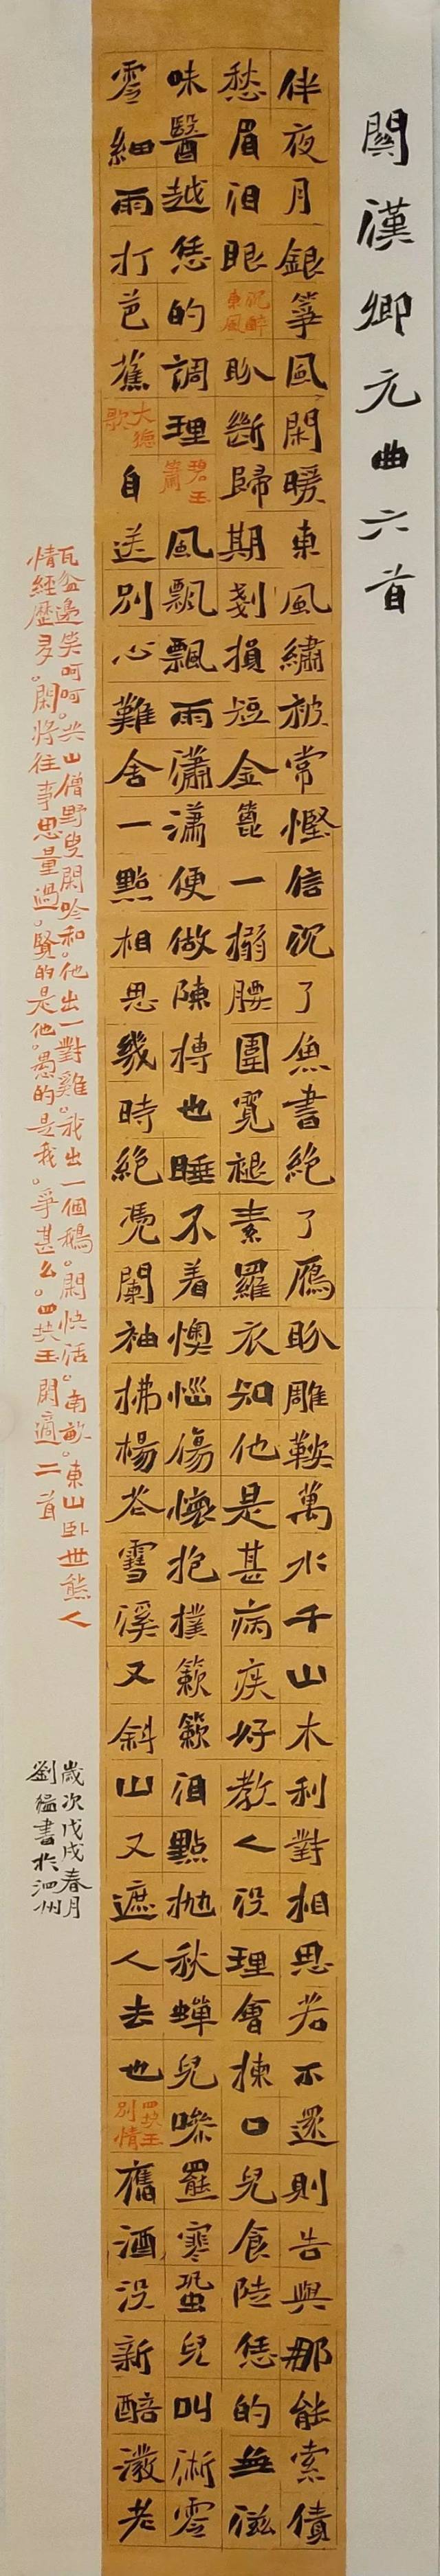 關漢卿元曲六首
伴夜月銀箏風閑暖東風繡被常慳信沉了魚書絕了雁盼雕鞍萬水千山木利對相思若不還則告與那能索債
愁眉淚眼沉醉東風盼斷歸期劃損短金篦一搦腰圍寬褪素羅衣知他是甚病疾好教人沒理會揀口兒食陡恁的無滋
味醫越恁的調理碧玉簫風飄飄雨瀟瀟便做陳摶也睡不着懊惱傷懷抱撲簌簌淚點拋秋蟬兒噪罷寒蛩兒叫淅零
零細雨打芭蕉大德歌自送別心難舍一點相思幾時絕憑闌袖拂楊花雪溪又斜山又遮人去也四块玉別情舊酒沒新醅潑老
瓦盆邊笑呵呵。共山僧野叟閑吟和。他出一對雞。我出一個鵝。閑快活。南畝。東山臥世態人
情經歷多。閑將往事思量過。賢的是他。愚的是我。爭甚么。四块玉閑適二首
歲次戊戌春月
劉書於泗州